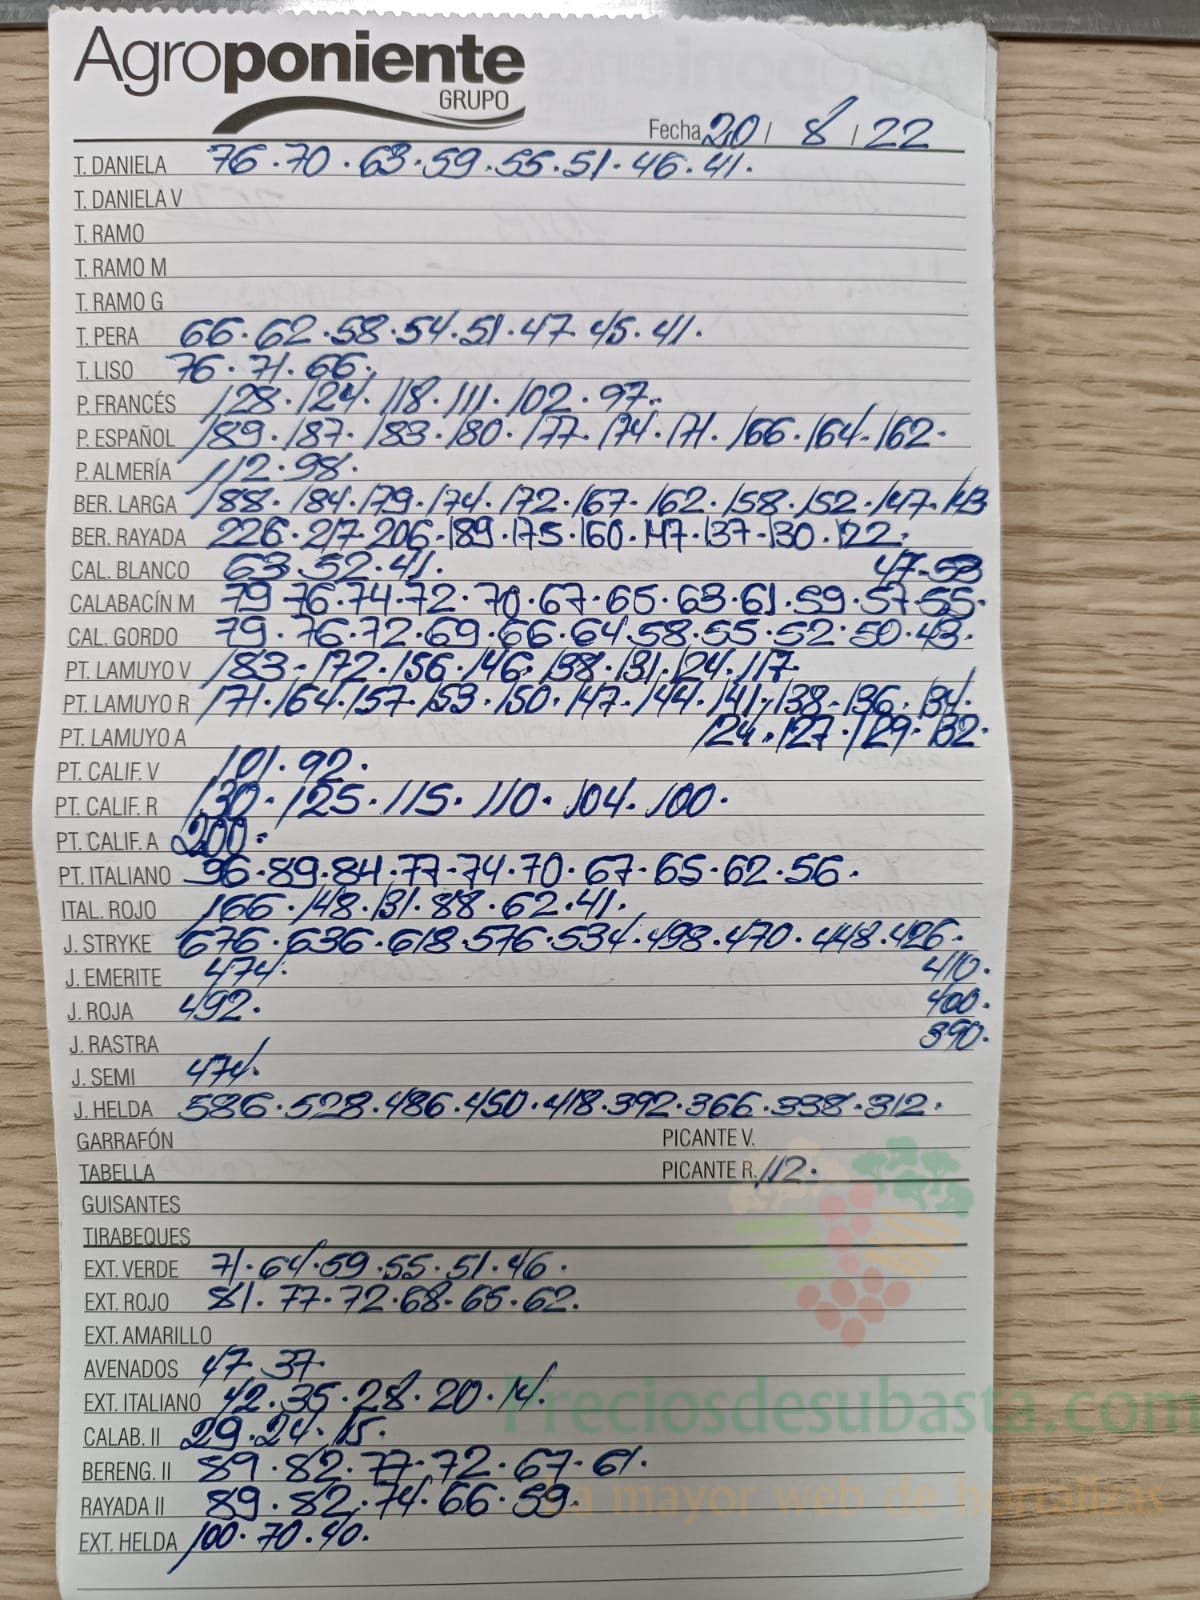 Agroponiente
GRUPO
Fecha 20 / 8 / 22
T. DANIELA 76·70·63·59·55·51·46·41·
T. DANIELA V
T. RAMO
T. RAMO M
T. RAMO G
T. PERA 66·62·58·54·51·47·45·41·
T. LISO 76·71·66·
P. FRANCÉS 128·124·118·111·102·97·
P. ESPAÑOL 189·187·183·180·177·174·171·166·164·162·
P. ALMERÍA 112·98·
BER. LARGA 188·184·179·174·172·167·162·158·152·147·143
BER. RAYADA 226·217·206·189·175·160·147·137·130·122·
CAL. BLANCO 63·52·41· 47·53
CALABACÍN M 79·76·74·72·70·67·65·63·61·59·57·55·
CAL. GORDO 79·76·72·69·66·64·58·55·52·50·43·
PT. LAMUYO V 183·172·156·146·138·131·124·117·
PT. LAMUYO R 171·164·157·153·150·147·144·141·138·136·134·
PT. LAMUYO A 124·127·129·132·
PT. CALIF. V 101·92·
PT. CALIF. R 130·125·115·110·104·100·
PT. CALIF. A 200·
PT. ITALIANO 96·89·84·77·74·70·67·65·62·56·
ITAL. ROJO 166·148·131·88·62·41·
J. STRYKE 676·636·618·576·534·498·470·448·426·
J. EMERITE 474· 410·
J. ROJA 492· 400·
J. RASTRA 390·
J. SEMI 474·
J. HELDA 586·528·486·450·418·392·366·338·312·
GARRAFÓN PICANTE V.
TABELLA PICANTE R. 112·
GUISANTES
TIRABEQUES
EXT. VERDE 71·64·59·55·51·46·
EXT. ROJO 81·77·72·68·65·62·
EXT. AMARILLO
AVENADOS 47·37·
EXT. ITALIANO 42·35·28·20·14·
Preciosdesubasta.com
CALAB. II 29·24·15·
BERENG. II 89·82·77·72·67·61·
RAYADA II 89·82·74·66·59·
la mayor web de hortalizas
EXT. HELDA 100·70·40·